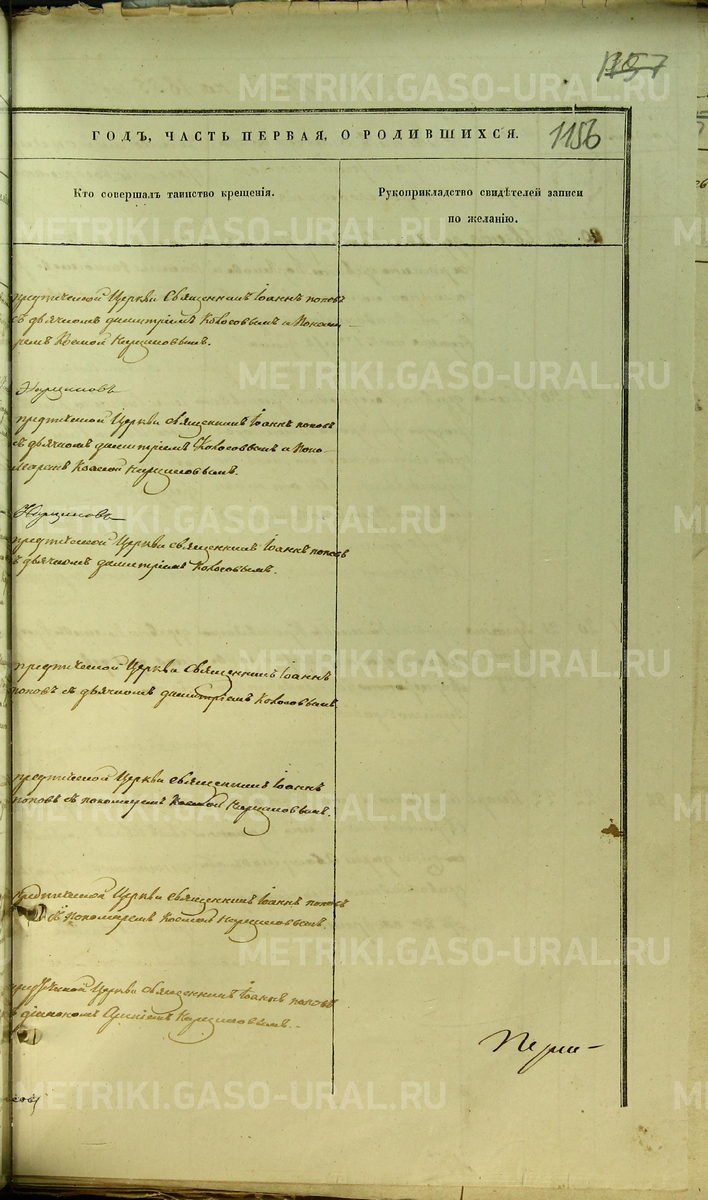 1157
ГОДЪ, ЧАСТЬ ПЕРВАЯ, О РОДИВШИХСЯ.
1156
Кто совершалъ таинство крещенія.
Рукоприкладство свидѣтелей записи
по желанію.
предтеческой Церкви Священникъ Іоаннъ поповъ
съ дьячкомъ димитріемъ Колосовымъ и Понома-
ремъ Космой
предтеческой Церкви священникъ Іоаннъ поповъ
съ дьячкомъ димитріемъ Колосовымъ и Поно-
маремъ Космой
предтеческой Церкви священникъ Іоаннъ поповъ
съ дьячкомъ димитріемъ Колосовымъ.
предтеческой Церкви Священникъ Іоаннъ
поповъ съ дьячкомъ димитріемъ Колосовымъ
предтеческой Церкви священникъ Іоаннъ
поповъ съ пономаремъ Космой
предтеческой Церкви священникъ Іоаннъ поповъ
съ Пономаремъ Космой
предтеческой Церкви священникъ Іоаннъ поповъ
METRIKI.GASO-URAL.RU